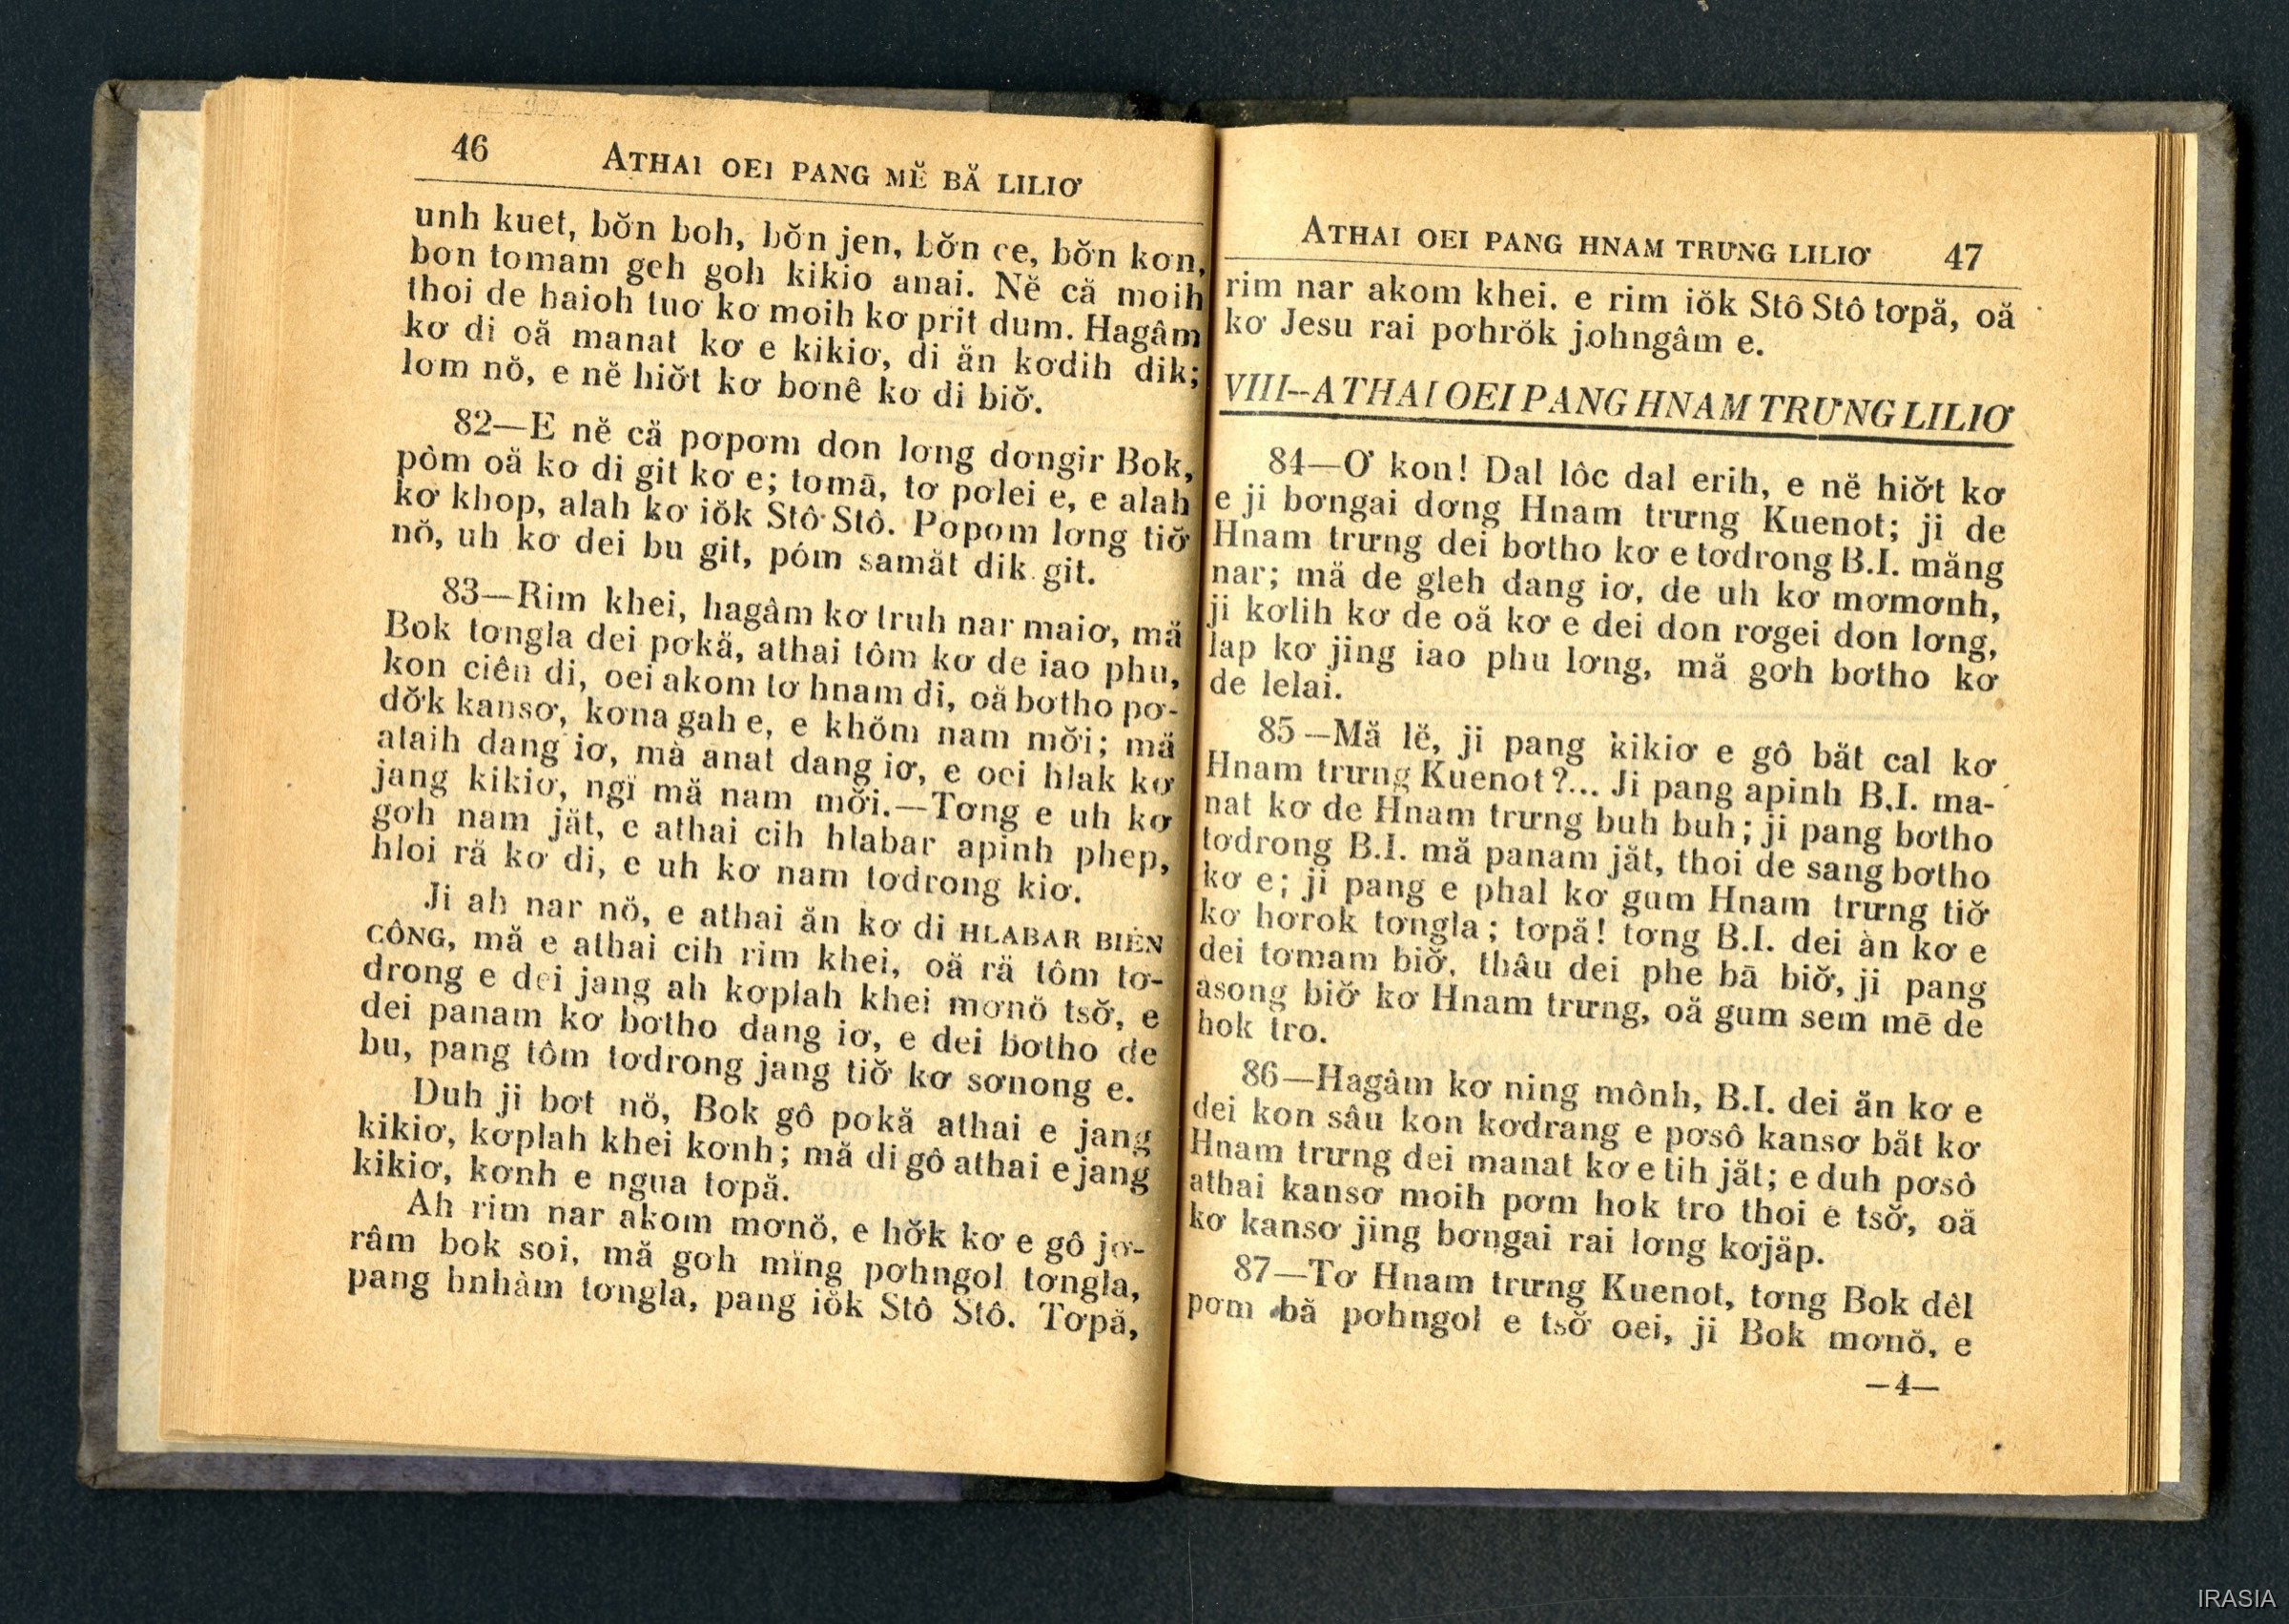 46 ATHAI OEI PANG MĔ BĂ LILIƠ
unh kuet, bơ̆n boh, bơ̆n jen, bơ̆n ce, bơ̆n kơn,
bon tomam geh goh kikio anai. Nĕ că moih
thoi de haioh tuơ kơ moih kơ prit dum. Hagâm
kơ di oă manat kơ e kikiơ, di ăn kơdih dik;
lơm nŏ, e nĕ hiơ̆t kơ bơnê kơ di biơ̆.
82—E nĕ că pơpơm don lơng dơngir Bok,
pòm oă kơ di git kơ e; tomā, tơ pơlei e, e alah
kơ khop, alah kơ iŏk Stô Stô. Popom lơng tiơ̆
nŏ, uh kơ dei bu git, póm samăt dik git.
83—Rim khei, hagâm kơ truh nar maiơ, mă
Bok tơngla dei pơkă, athai tôm kơ de iao phu,
kon ciên di, oei akom tơ hnam di, oă bơtho pơ-
dơ̆k kansơ, kơna gah e, e khŏm nam mơ̆i; mă
ataih dang iơ, mă anat dang iơ, e oei hlak kơ
jang kikiơ, ngĭ mă nam mơ̆i.—Tơng e uh kơ
gơh nam jăt, e athai cih hlabar apinh phep,
hloi ră kơ di, e uh kơ nam tơdrong kiơ.
Ji ah nar nŏ, e athai ăn kơ di HLABAR BIÊN
CÔNG, mă e athai cih rim khei, oă ră tôm tơ-
drong e dei jang ah kơplah khei mơnŏ tsơ̆, e
dei panam kơ bơtho dang iơ, e dei bơtho de
bu, pang tôm tơdrong jang tiơ̆ kơ sơnong e.
Duh ji bơt nŏ, Bok gô pơkă athai e jang
kikiơ, kơplah khei kơnh; mă di gô athai e jang
kikiơ, kơnh e ngua tơpă.
Ah rim nar akom mơnŏ, e hơ̆k kơ e gô jơ-
râm bok soi, mă gơh mĭng pơhngol tơngla,
pang hnhàm tơngla, pang iŏk Stô Stô. Tơpă,
ATHAI OEI PANG HNAM TRƯNG LILIƠ 47
rim nar akom khei. e rim iŏk Stô Stô tơpă, oă
kơ Jesu rai pơhrŏk jơhngâm e.
VIII--ATHAI OEI PANG HNAM TRƯNG LILIƠ
84—Ơ kon! Dal lôc dal erih, e nĕ hiơ̆t kơ
e ji bơngai dơng Hnam trưng Kuenot; ji de
Hnam trưng dei bơtho kơ e tơdrong B.I. măng
nar; mă de gleh dang iơ, de uh kơ mơmơnh,
ji kơlih kơ de oă kơ e dei don rơgei don lơng,
lap kơ jing iao phu lơng, mă gơh bơtho kơ
de lelai.
85—Mă lĕ, ji pang kikiơ e gô băt cal kơ
Hnam trưng Kuenot?... Ji pang apinh B.I. ma-
nat kơ de Hnam trưng buh buh; ji pang bơtho
tơdrong B.I. mă panam jăt, thoi de sang bơtho
kơ e; ji pang e phal kơ gum Hnam trưng tiơ̆
kơ hơrok tơngla; tơpă! tơng B.I. dei ăn kơ e
dei tơmam biơ̆, thâu dei phe bā biơ̆, ji pang
asong biơ̆ kơ Hnam trưng, oă gum sem mē de
hok tro.
86—Hagâm kơ ning mônh, B.I. dei ăn kơ e
dei kon sâu kon kơdrang e pơsô kansơ băt kơ
Hnam trưng dei manat kơ e tih jăt; e duh pơsô
athai kansơ moih pơm hok tro thoi e tsơ̆, oă
kơ kansơ jing bơngai rai lơng kơjăp.
87—Tơ Hnam trưng Kuenot, tơng Bok dêl
pơm bă pơhngol e tsơ̆ oei, ji Bok mơnŏ, e
—4—
IRASIA